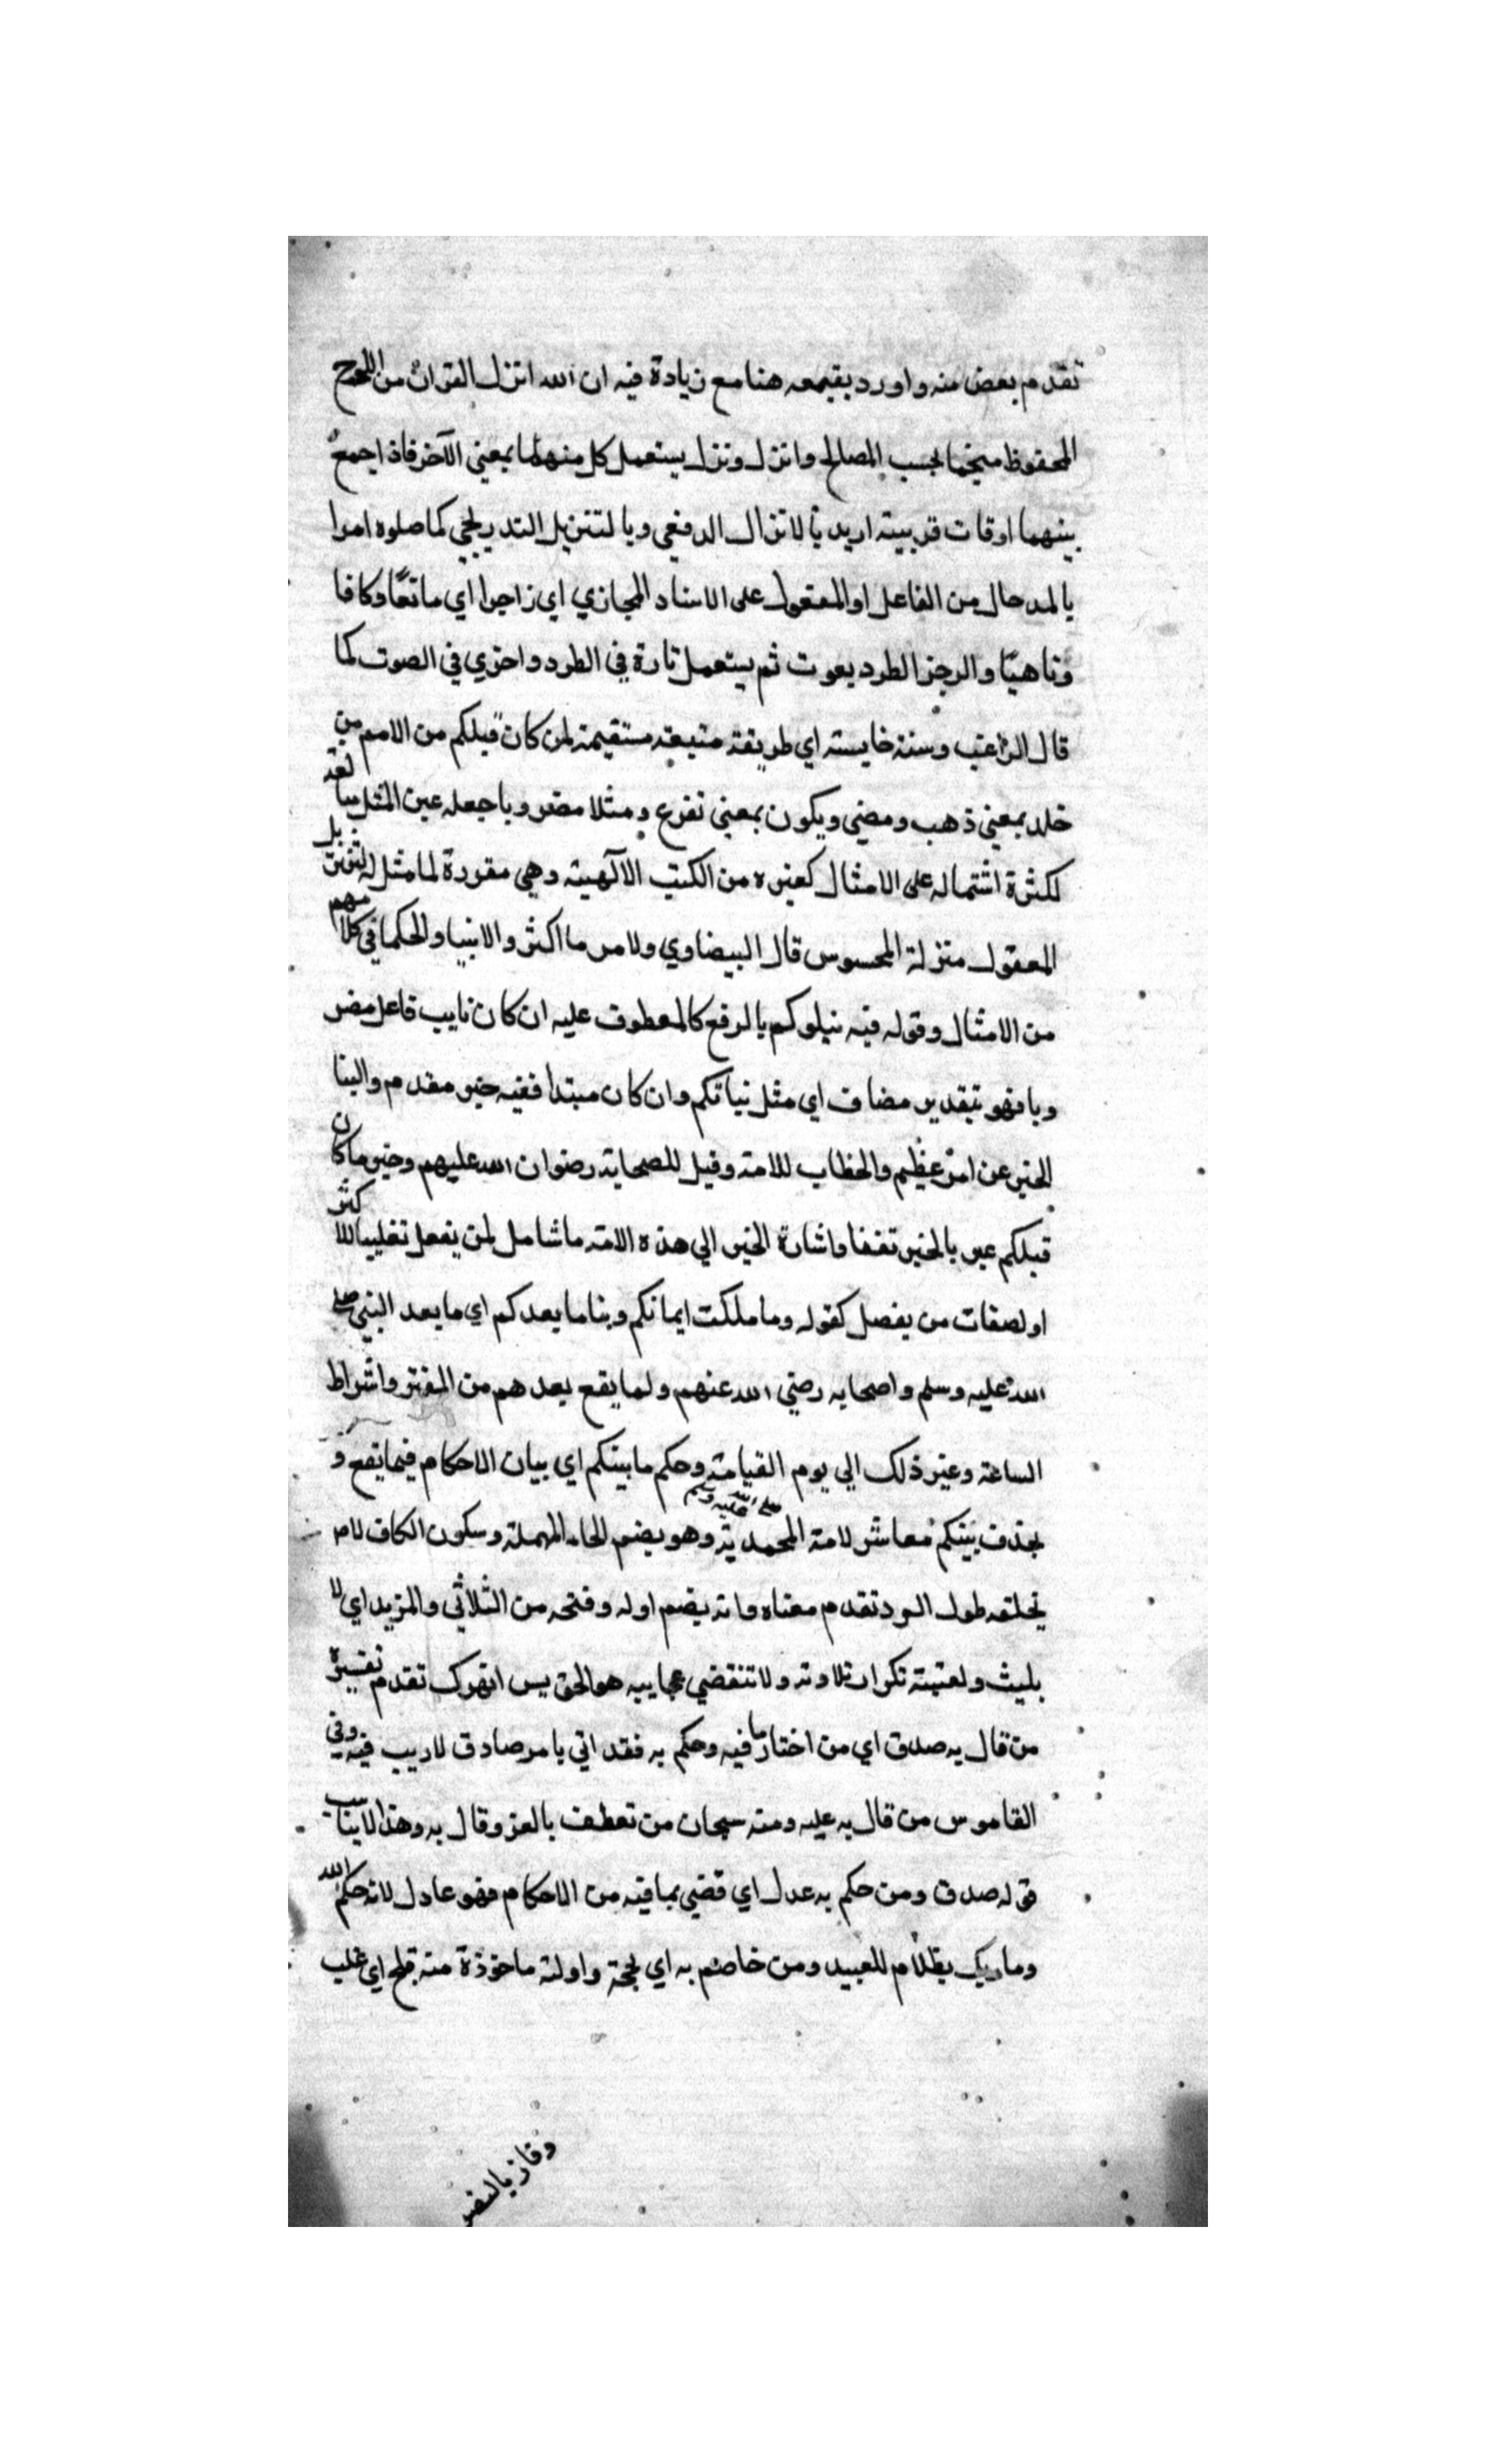 تقدم بعض منه واورد بقيمعه هنا مع زيادة فيه ان الله انزل القران من اللوح
المحفوظ منجما بحسب المصالح وانزل ونزل يستعمل كل منهما بمعني الآخر فاذا جمع
بينهما اوقات قربيته اريد بالانزال الدفعي وبالتنزيل التدريجي كما صلوه امرا
بالمد حال من الفاعل او المفعول على الاسناد المجازي اي زاجرا اي مانعًا وكافا
وناهيًا والرجز الطرد بعوت ثم يستعمل تارة في الطرد واخري في الصوت كما
قال الراغب وسنة خايسته اي طريقة متبعة مستقيمة لمن كان قبلكم من الامم من
خلد بمعني ذهب ومضي ويكون بمعني تفرع ومثلا مضروبا جعله عين المثل مبا لغه
لكثرة اشتماله على الامثال كغيره من الكتب الالٓهية وهي مقررة لما مثل له لتنزيل
المعقول منزلة المحسوس قال البيضاوي ولامر ما اكثر والانبيا والحكما في كلامهم
من الامثال وقوله فيه نيلوكم بالرفع كالمعطوف عليه ان كان نايب فاعل مضر
وبا فهو بتقدير مضاف اي مثل نياتكم وان كان مبتدا ففيه خبر مقدم والبنا
الخبر عن امر عظيم والخطاب للامة وقيل للصحابة رضوان الله عليهم وخبر ما كان
قبلكم عبر بالخبر تفننا واشارة الخبر الي هذه الامة ما شامل لمن يفعل تغليبا للا كثر
او لصفات من يفصل كقوله وما ملكت ايمانكم وبنا ما بعدكم اي ما بعد النبي صلى
الله عليه وسلم واصحابه رضي الله عنهم ولما يقع بعدهم من الفتن واشراط
الساعة وغير ذلك الي يوم القيامة وحكم ما بينكم اي بيان الاحكام فيما يقع و
بحذف بينكم معاشر لامة المحمدية صلى الله عليه وسلم وهو بضم الحاء المهملة وسكون الكاف لا م
تخلقه طول الرد تقدم معناه وانه بضم اوله وفتحه من الثلاثي والمزيد اي لا
بليث ولعتبته تكرار تلاوته ولا تنقضي عجايبه هو الحق يس اتهرك تقدم تفسيره
من قال به صدق اي من اختار ما فيه وحكم به فقد اتي بامر صادق لا ريب فيه وفي
القاموس من قال به عليه ومنه سبحان من تعطف بالعز وقال به وهذا لا يناسب
قوله صدق ومن حكم به عدل اي قضي بما فيه من الاحكام فهو عادل لانه حكم الله
وما ربك بظلام للعبيد ومن خاصم به اي بحجة واولة ماخوذة منه فلج اي غلب
وفاز بالنصر